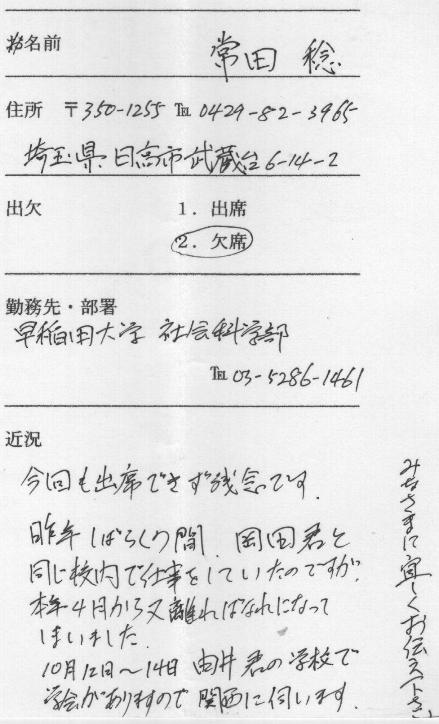 お名前 常田 稔
住所 〒350-1255 ℡ 0429-82-3965
埼玉県日高市武蔵台6-14-2
出欠 1. 出席
2. 欠席
勤務先・部署
早稲田大学 社会科学部
℡ 03-5286-1461
近況
今回も出席できず残念です.
昨年しばらくの間, 岡田君と
同じ校内で仕事をしていたのですが,
本年4月から又離ればなれになって
しまいました.
10月12日~14日 由井君の学校で
学会がありますので関西に伺います.
みなさまに宜しくお伝え下さい